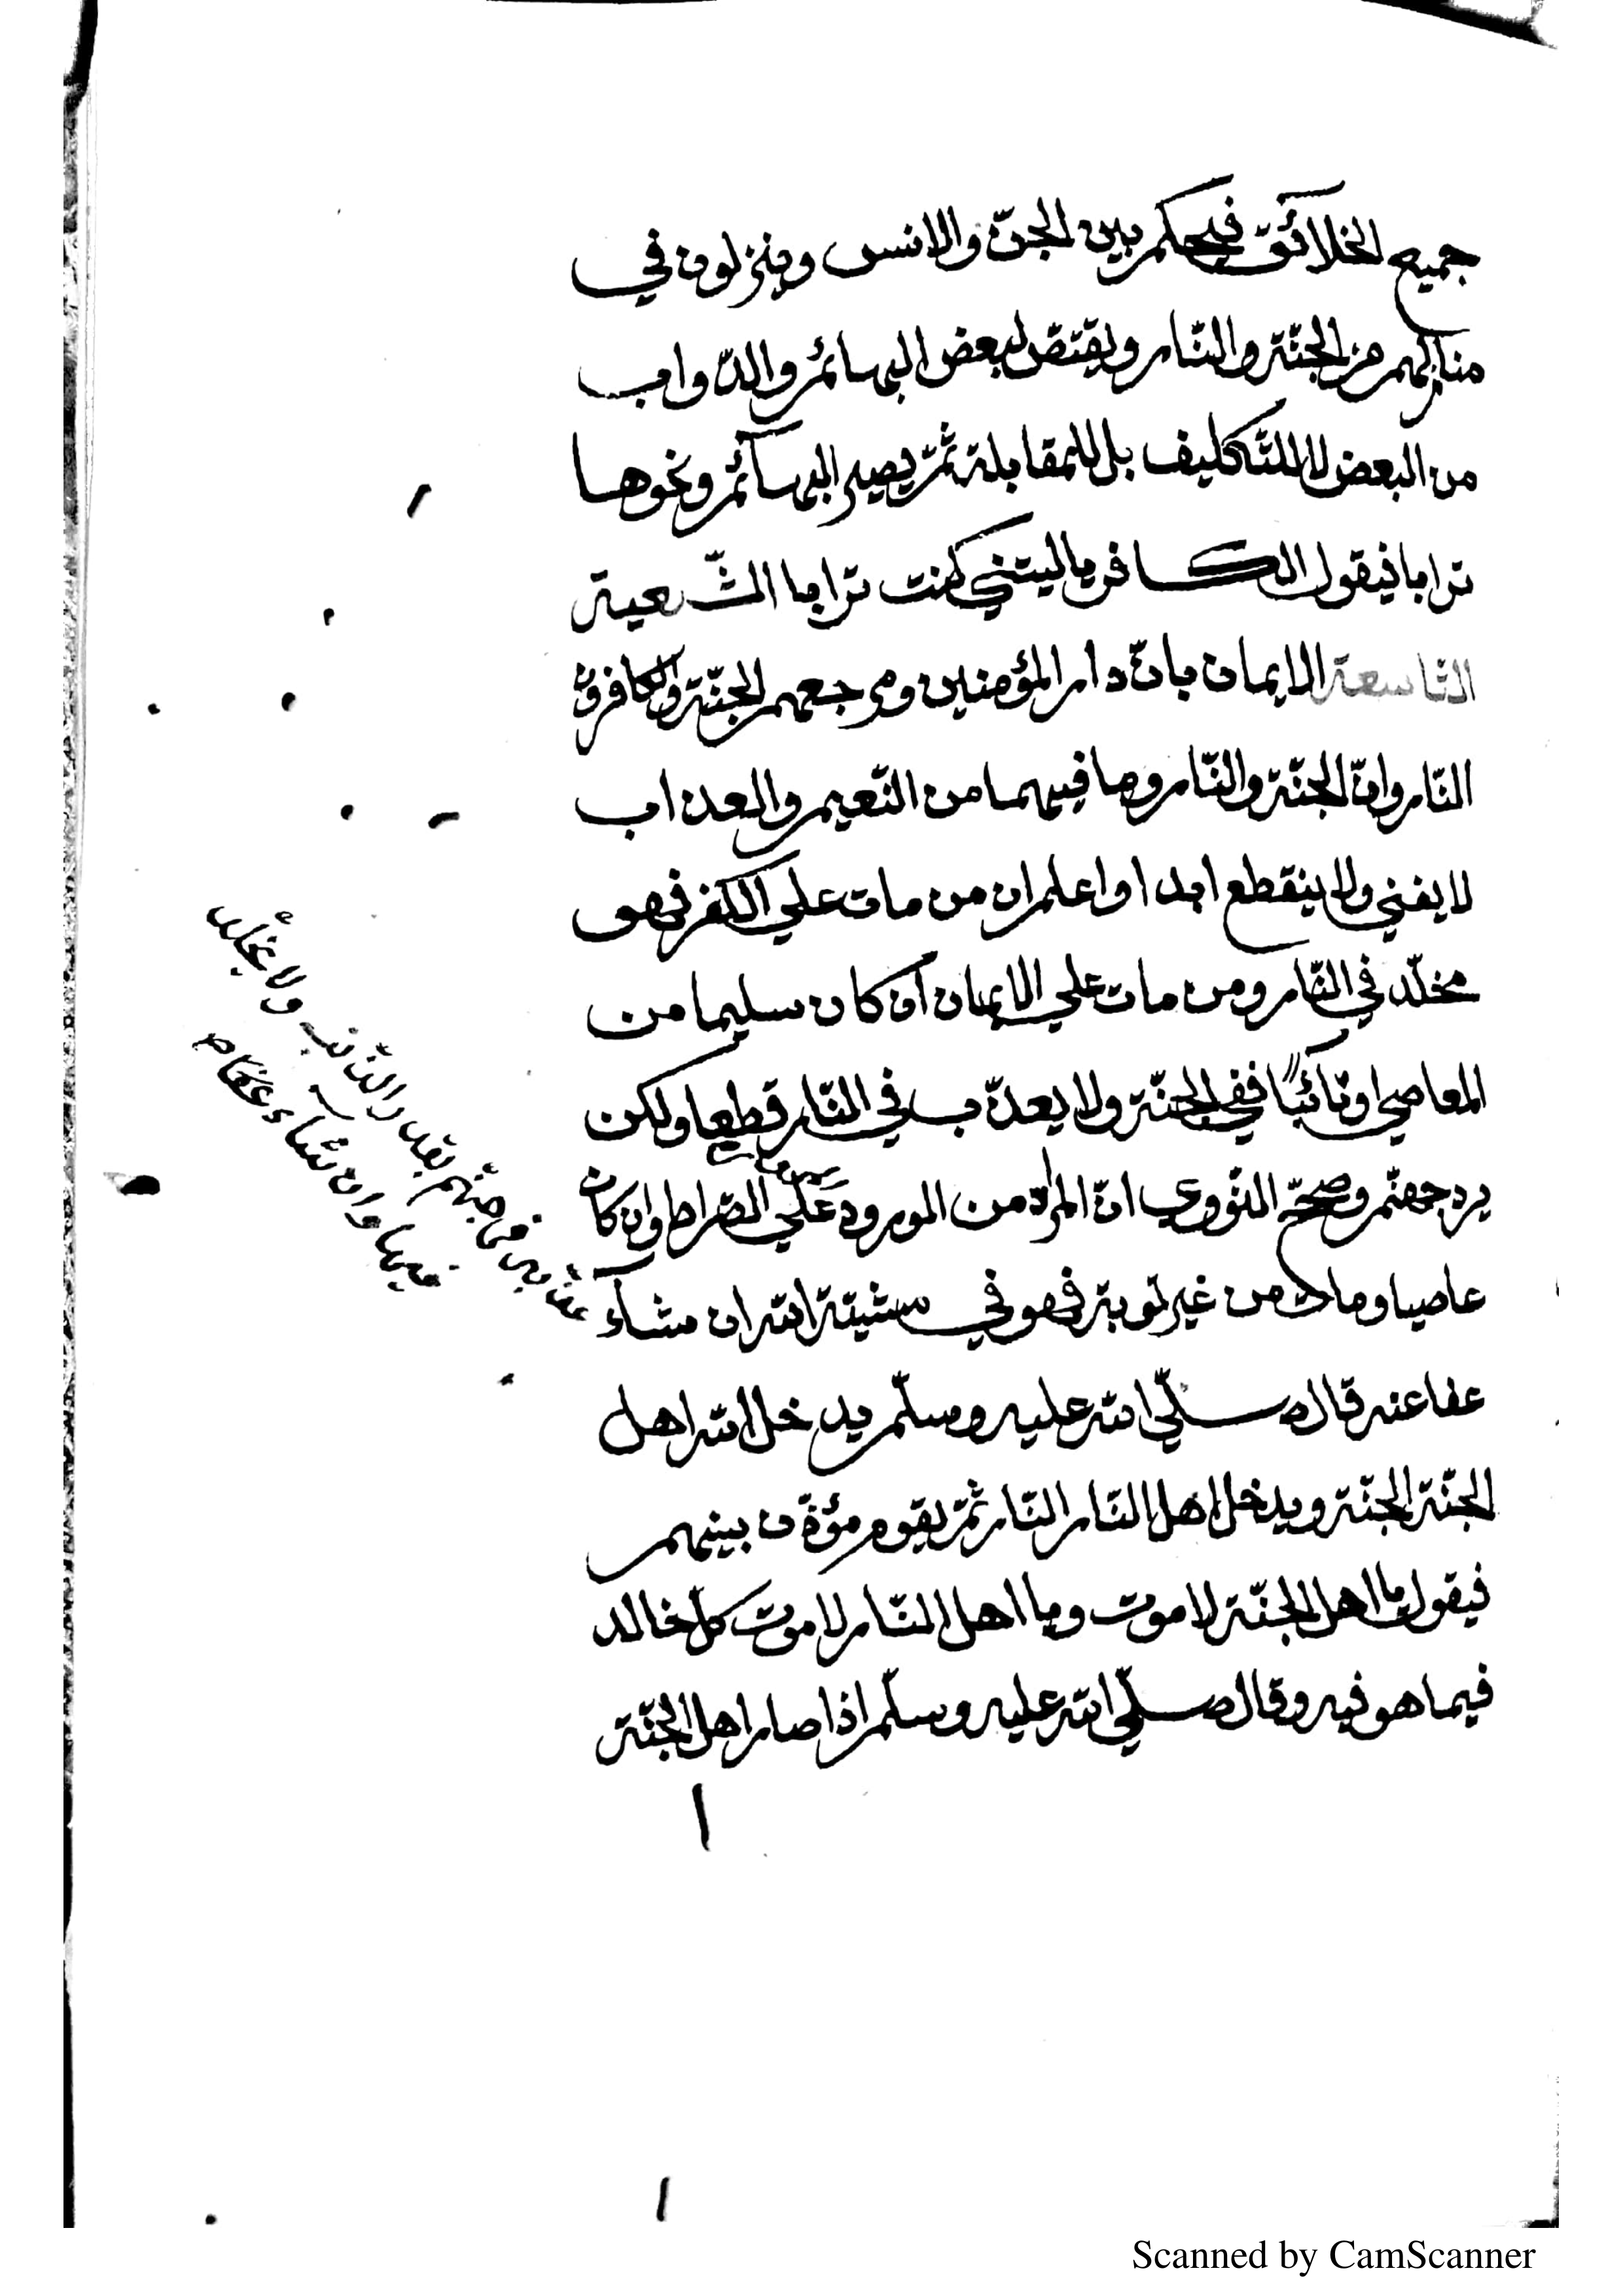 جميع الخلائق فيحكم بين الجنّ والانس وينزلون في
منازلهم من الجنّة والنّار ويقتصّ لبعض البهائم والدّواب
من البعض لا للتّكليف بل للمقابلة ثمّ يصير البهائم ونحوها
ترابا فيقول الكافر ياليتني كنت ترابا الشّعبة
التّاسعة الايمان بانّ دار المؤمنين ومرجعهم الجنّة والكافرون
النّار وانّ الجنّة والنّار وما فيهما من النّعيم والعذاب
لا يفني ولا ينقطع ابدا واعلم ان من مات علي الكفر فهو
مخلّد في النّار ومن مات علي الايمان ان كان سليما من
المعاصي او تائبًا ففي الجنّة ولا يعذّب في النّار قطعا ولكن
يرد جهنّم وصحّح النّووي انّ المراد من الورود علي الصّراط وان كان
عاصيا ومات من غير توبة فهو في مشيّة الله ان شاء
عفا عنه قال صلّي الله عليه وسلّم يدخل الله اهل
الجنّة الجنّة ويدخل اهل النّار النّار ثمّ يقوم مؤذّن بينهم
فيقول يا اهل الجنّة لا موت ويا اهل النّار لا موت كلّ خالد
فيما هو فيه وقال صلّي الله عليه وسلّم اذا صار اهل الجنّة
بقدر الذّنب ولا يخلّد
فيها وان شاء عفاه
Scanned by CamScanner